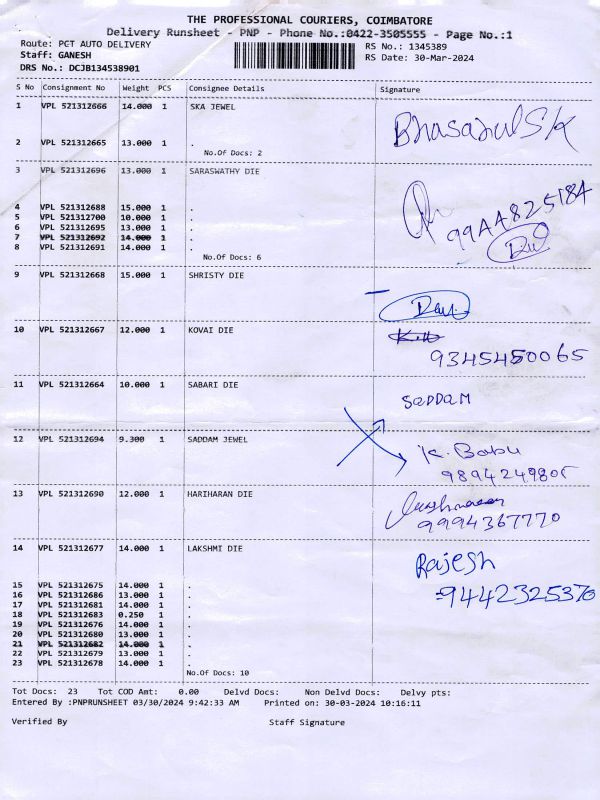 THE PROFESSIONAL COURIERS, COIMBATORE
Delivery Runsheet - PNP - Phone No.:0422-3505555 - Page No.:1
Route: PCT AUTO DELIVERY
RS No.: 1345389
Staff: GANESH
RS Date: 30-Mar-2024
DRS No.: DCJB134538901
S No Consignment No Weight PCS Consignee Details Signature
1 VPL 521312666 14.000 1 SKA JEWEL
2 VPL 521312665 13.000 1 .
No.Of Docs: 2
3 VPL 521312696 13.000 1 SARASWATHY DIE
4 VPL 521312688 15.000 1 .
5 VPL 521312700 10.000 1 .
6 VPL 521312695 13.000 1 .
7 VPL 521312692 14.000 1 .
8 VPL 521312691 14.000 1 .
99AA825184
No.Of Docs: 6
9 VPL 521312668 15.000 1 SHRISTY DIE
10 VPL 521312667 12.000 1 KOVAI DIE
9345450065
11 VPL 521312664 10.000 1 SABARI DIE
SADDAM
12 VPL 521312694 9.300 1 SADDAM JEWEL
K. Babu
9894249805
13 VPL 521312690 12.000 1 HARIHARAN DIE
9994367770
14 VPL 521312677 14.000 1 LAKSHMI DIE
Rajesh
9442325370
15 VPL 521312675 14.000 1 .
16 VPL 521312686 13.000 1 .
17 VPL 521312681 14.000 1 .
18 VPL 521312683 0.250 1 .
19 VPL 521312676 14.000 1 .
20 VPL 521312680 13.000 1 .
21 VPL 521312682 14.000 1 .
22 VPL 521312679 13.000 1 .
23 VPL 521312678 14.000 1 .
No.Of Docs: 10
Tot Docs: 23 Tot COD Amt: 0.00 Delvd Docs: Non Delvd Docs: Delvy pts:
Entered By :PNPRUNSHEET 03/30/2024 9:42:33 AM Printed on: 30-03-2024 10:16:11
Verified By Staff Signature